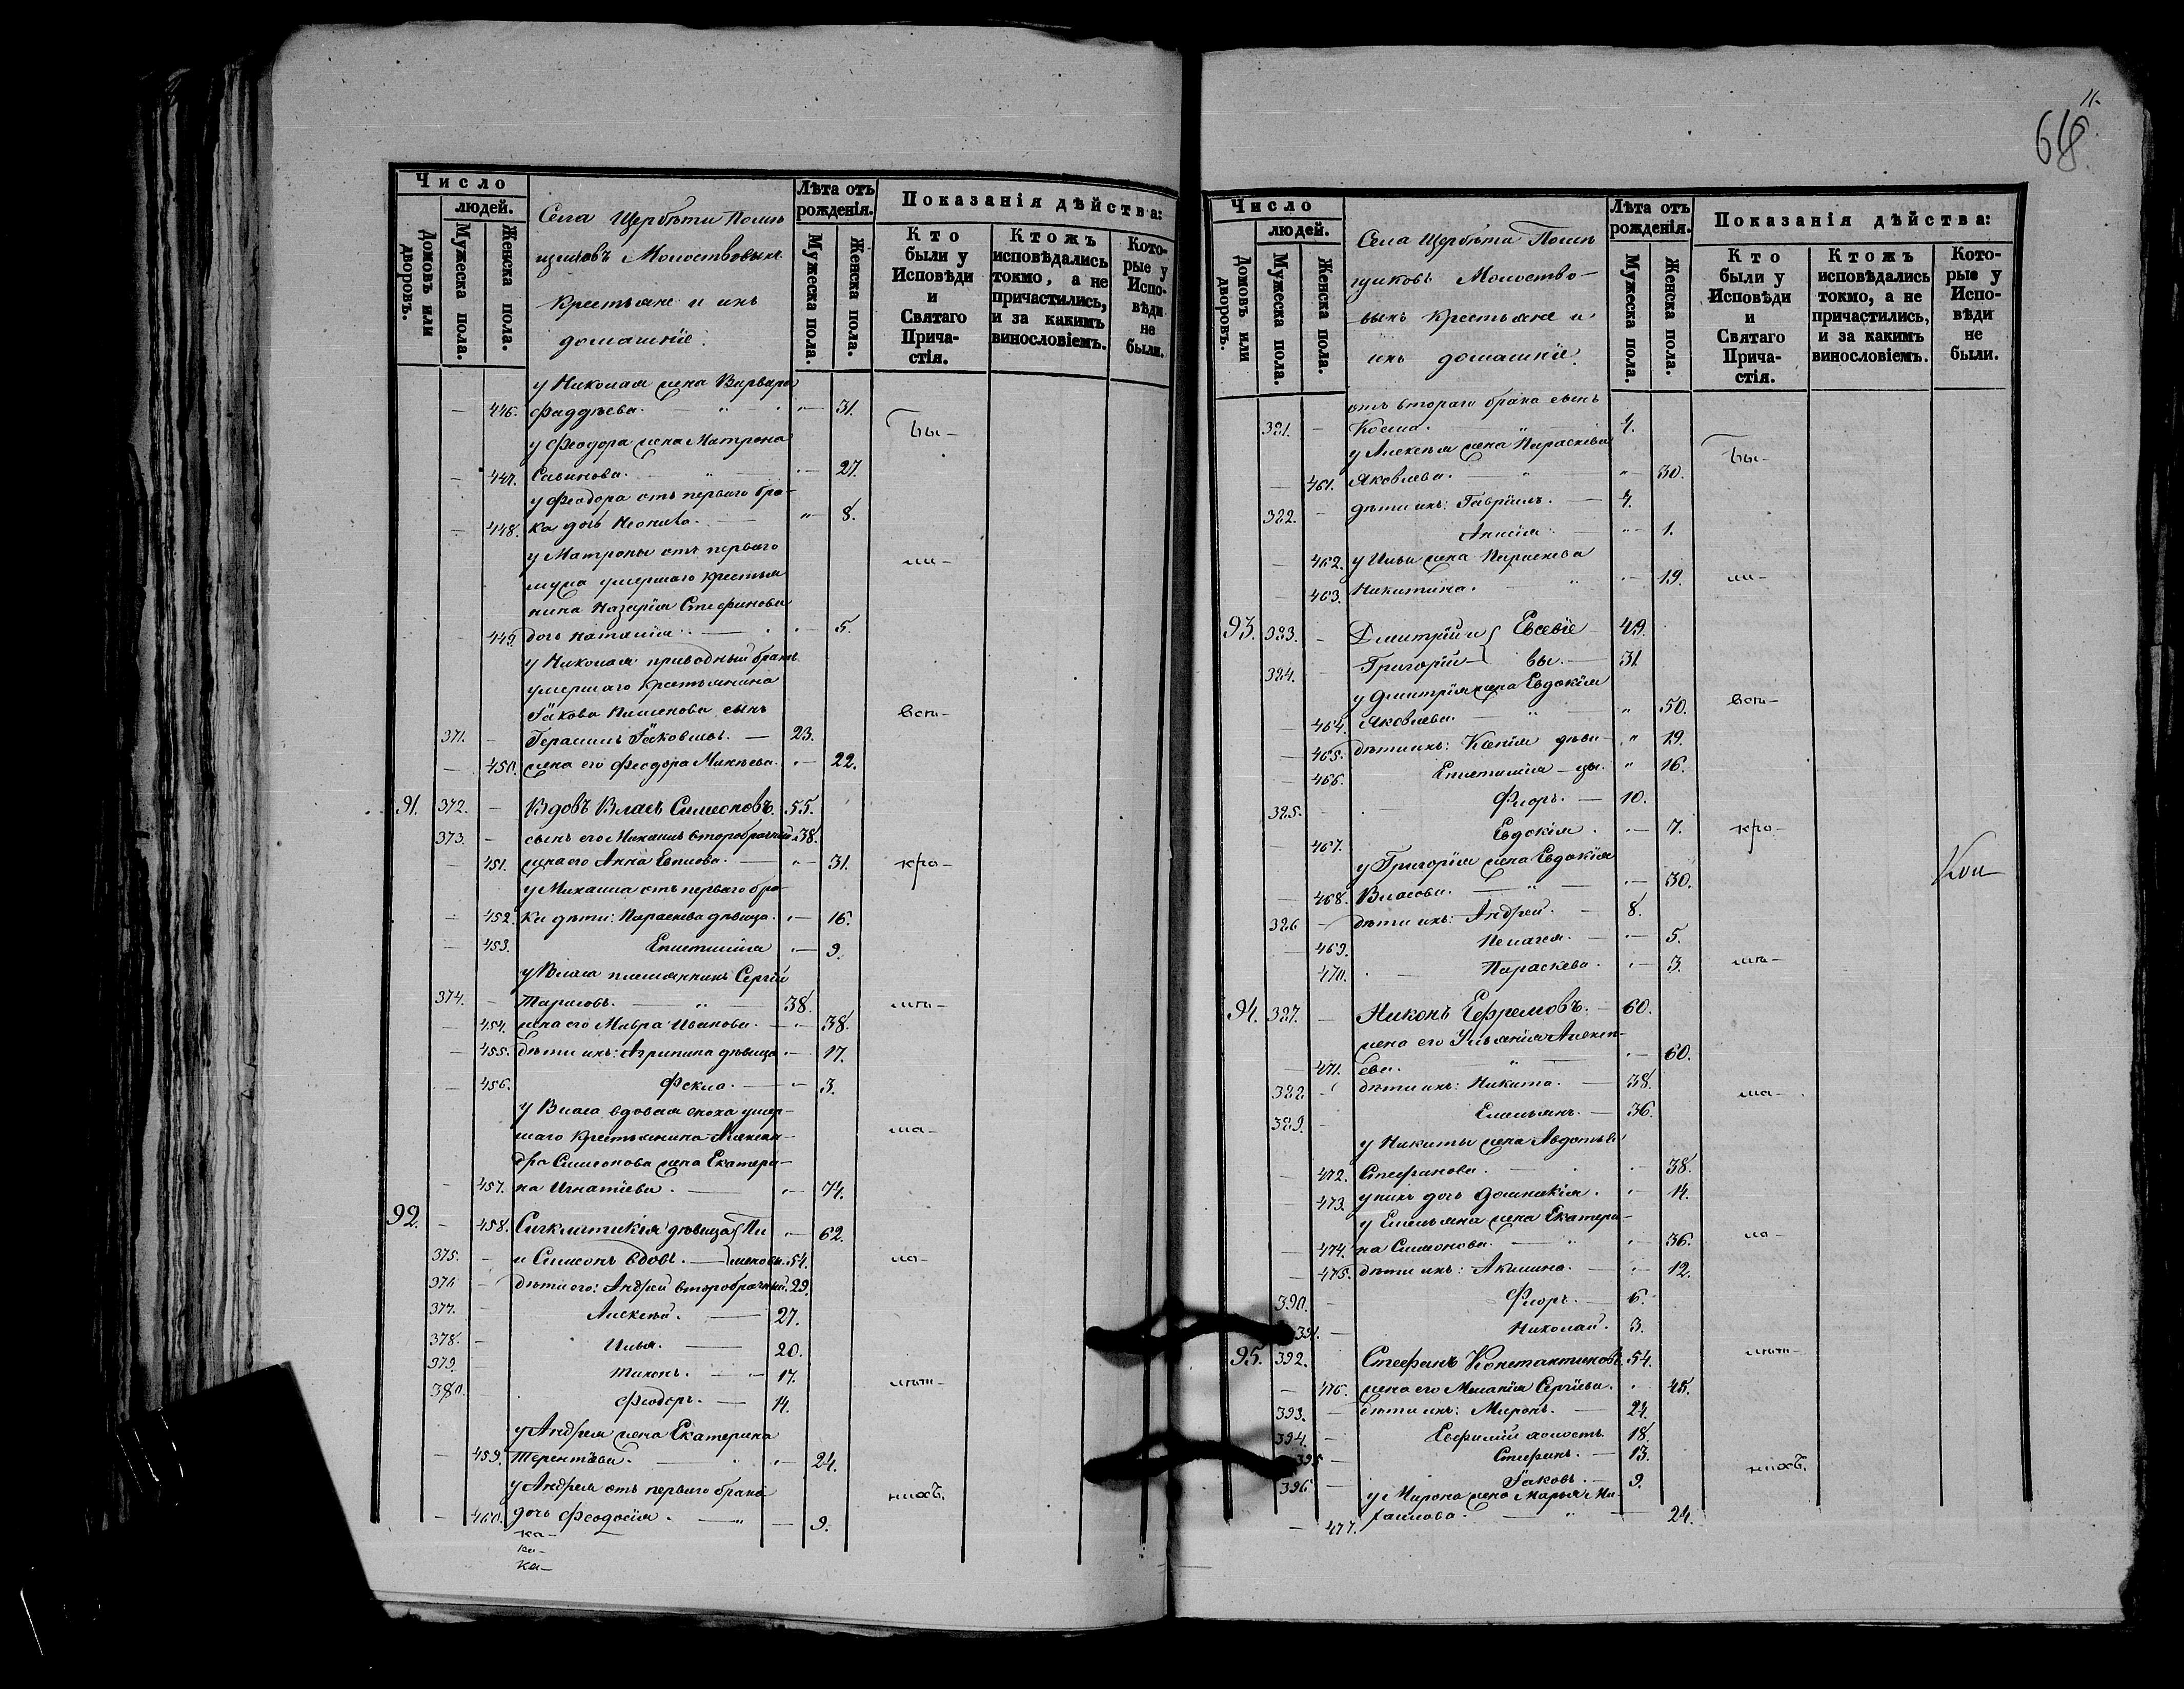 Число
людей.
Домовъ или дворовъ.
Мужеска пола.
Женска пола.
Села Щербѣти Помѣ
щиковъ Молоствовыхъ
крестьяне и ихъ
домашнiе.
Лѣта отъ рожденiя.
Мужеска пола.
Женска пола.
Показанiя дѣйства:
Кто были у Исповѣди и Святаго Прича-стiя.
Ктожъ исповѣдались токмо, а не причастились, и за какимъ винословiемъ.
Кото-рые у Испо-вѣди не были.
у Николая жена Варвара
— 446. Фаддѣева. — " — 31.
Бы-
у Феодора жена Матрена
— 447. Савинова. — " — 27.
у Феодора отъ перваго бра-
— 448. ка дочь Неонила. — " — 8.
у Матроны отъ перваго
ли-
мужа умершаго крестья
нина Назарiя Стефанова
— 449. дочь Наталiя. — 5.
у Николая приводный брата
умершаго крестьянина
Iакова Пименова сынъ
вси-
371. — Герасимъ Iаковлевъ. — 23.
— 450. жена его Феодора Минѣева. — 22.
91. 372. — Вдовъ Власъ Симеоновъ. 55.
373. — сынъ его Михаилъ второбрачный 38.
— 451. жена его Анна Евпова. — 31.
кро-
у Михаила отъ перваго бра-
— 452. ка дѣти: Параскева дѣвица. — 16.
— 453. Епистимiя — 9.
у Власа племянникъ Сергiй
374. — Тарасовъ. — " — 38.
— 454. жена его Мавра Иванова. — 38.
— 455. дѣти ихъ: Агрипина дѣвица — 17.
— 456. Фекла. — 3.
у Власа вдовая сноха умер-
шаго крестьянина Алексан-
ма-
дра Симеонова жена Екатери-
— 457. на Игнатiева. — 74.
92. — 458. Сигклитикiя дѣвица Пи — 62.
375. — и Симеонъ вдовъ. — меновы. 54.
ло-
376 — дѣти его: Андрей второбрачный. 29.
377. — Алексѣй. — 27.
378. — Илья. — 20.
379. Тихонъ. — 17.
380. Феодоръ. — 14.
лѣт-
у Андрея жена Екатерина
— 459. Терентьева. — 24.
у Андрея отъ перваго брака
нихъ.
— 460. дочь Феодосiя. — " — 9.
ка-
ка-
ка-
68
Число
людей.
Домовъ или дворовъ.
Мужеска пола.
Женска пола.
Села Щербѣти Помѣ
щиковъ Молоство-
выхъ крестьяне и
ихъ домашнiе.
Лѣта отъ рожденiя.
Мужеска пола.
Женска пола.
Показанiя дѣйства:
Кто были у Исповѣди и Святаго Прича-стiя.
Ктожъ исповѣдались токмо, а не причастились, и за какимъ винословiемъ.
Кото-рые у Испо-вѣди не были.
отъ втораго брака сынъ
381. — Косма. — 4.
у Алексѣя жена Параскева
Бы-
— 461. Яковлева. — " — 30.
382. — дѣти ихъ: Гаврiилъ. — 4.
— 462. Анисiя. — 1.
у Ильи жена Параскева
— 463. Никитина. — " — 19.
ли-
93. 383. — Димитрiй и Евсевiе 49.
384. — Григорiй — вы. — 31.
у Димитрiя жена Евдокiя
— 464. Яковлева. — " — 50.
вси-
— 465. дѣти ихъ: Ксенiя дѣви- " 19.
— 466. Епистимiя — цы. " 16.
385. Флоръ. — 10.
— 467. Евдокiя. — 7.
кро-
у Григорiя жена Евдокiя
— 468. Власова. — " — 30.
386 — дѣти ихъ: Андрей. — 8.
— 469. Пелагея. — 5.
470. — Параскева. — 3.
94. 387. — Никонъ Ефремовъ. — 60.
жена его Ульянiя Алексѣ-
— 471. ева. — " — 60.
388 — дѣти ихъ: Никита. — 38.
ма-
389. — Емельянъ. — 36.
у Никиты жена Авдотья
— 472. Стефанова. — 38.
— 473. у нихъ дочь Домникiя. — 14.
у Емельяна жена Екатери-
— 474. на Симонова. — " — 36.
ло-
— 475. дѣти ихъ: Акилина. — 12.
390. — Флоръ. — 6.
391. — Николай. 3.
95. 392. Стефанъ Константиновъ. 54.
лѣт-
— 476. жена его Меланiя Сергiева. 45.
393. — дѣти ихъ: Миронъ. — 24.
394. — Евфимiй холостъ 18.
395 — Стефанъ. — 13.
396 — Iаковъ. — 9.
нихъ.
у Мирона жена Марья Ми-
— 477. хаилова. — " — 24.